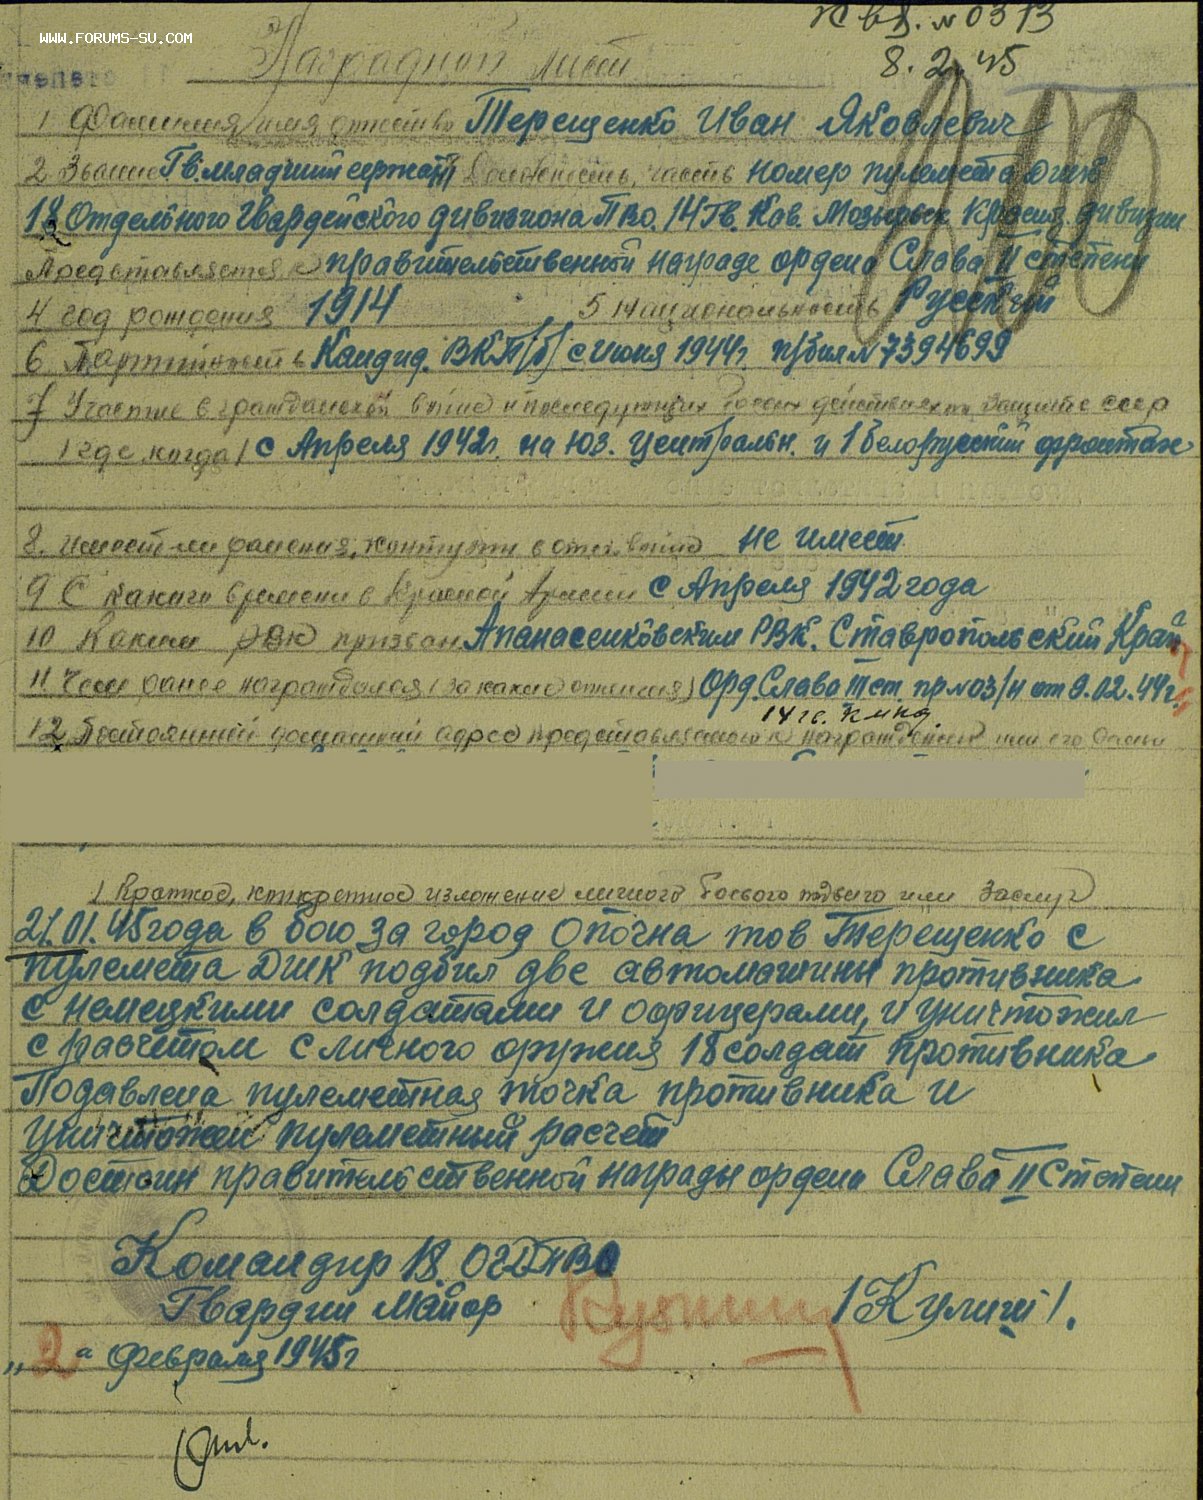 WWW.FORUMS-SU.COM
К вх. № 0313
8. 2. 45
Наградной лист
1 Фамилия, имя отчество Терещенко Иван Яковлевич
2 Звание Гв. младший сержант 3 Должность, часть номер пулемета ДШК
18 Отдельного Гвардейского дивизиона ПВО. 14 Гв. Кав. Мозырьск. Красн. дивизии
Представляется к правительственной награде ордена Слава II степени
4 год рождения 1914 5 Национальность Русский
6 Партийность Кандид. ВКП/б/ с Июня 1944г. п/бил № 7394699
7 Участие в гражданской войне и последующих боевых действиях по защите ссср
/где, когда/ с Апреля 1942г. на ЮЗ. Центральн. и 1 Белорусский фронтах
8. имеет ли ранения, контузии в отеч. войне не имеет
9 С какого времени в Красной Армии с Апреля 1942 года
10 Каким РВК призван Апанасенковским РВК. Ставропольский Край
11 Чем ранее награждался (за какие отличия) Орд. Слава III ст. пр № 03/н от 9.02.44г.
14 гв. кмкд.
12 Постоянный домашний адрес представляемого к награждению или его семьи
1 Краткое, конкретное изложение личного боевого подвига или заслуг
21.01.45 года в бою за город Опочна тов Терещенко с
пулемета ДШК подбил две автомашины противника
с немецкими солдатами и офицерами, и уничтожил
с расчетом с личного оружия 18 солдат противника
Подавлена пулеметная точка противника и
уничтожен пулеметный расчет
Достоин правительственной награды ордена Слава II Степени
Командир 18. ОГДПВО
Гвардии Майор /Кулиш/.
„2" февраля 1945г